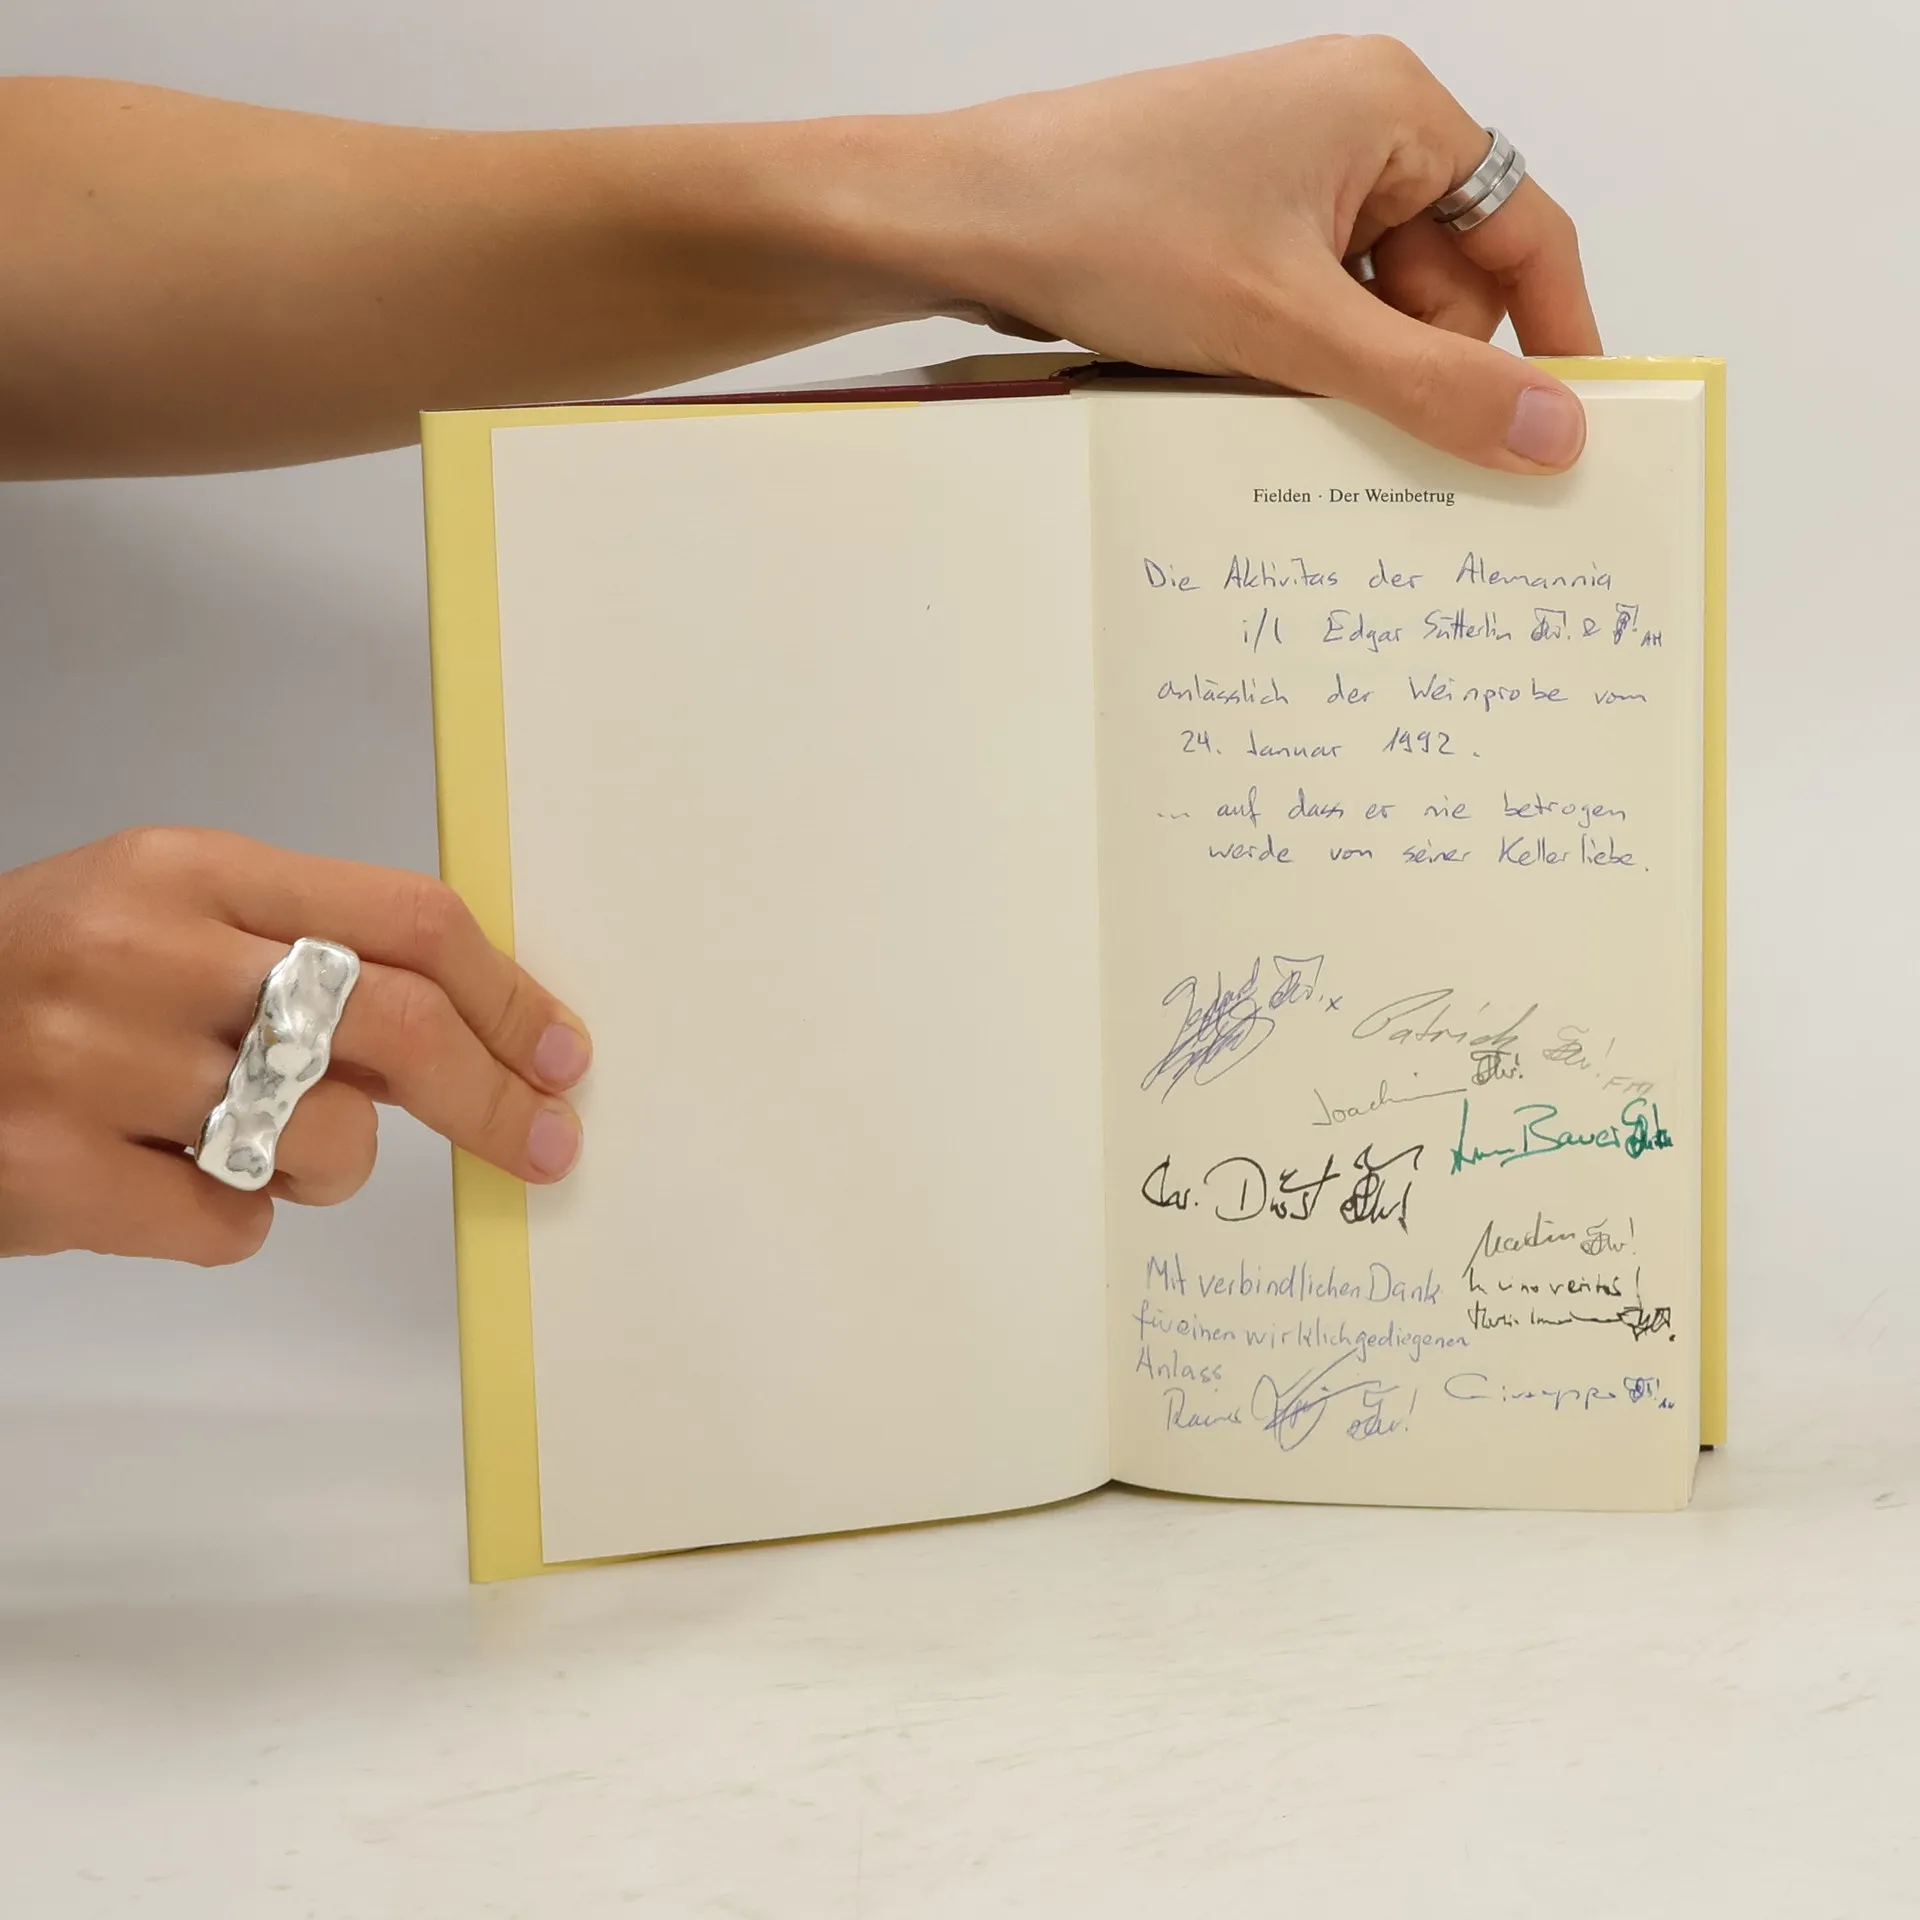 Fielden · Der Weinbetrug
Die Aktivitas der Alemannia
i/l Edgar Sütterlin & AH
anlässlich der Weinprobe vom
24. Januar 1992.
... auf dass er nie betrogen
werde von seiner Kellerliebe.
x
Patrick
FM
Joachim
Bauer
Martin
In vino veritas!
Mit verbindlichen Dank
für einen wirklich gediegenen
Anlass
Rainer
Giuseppe